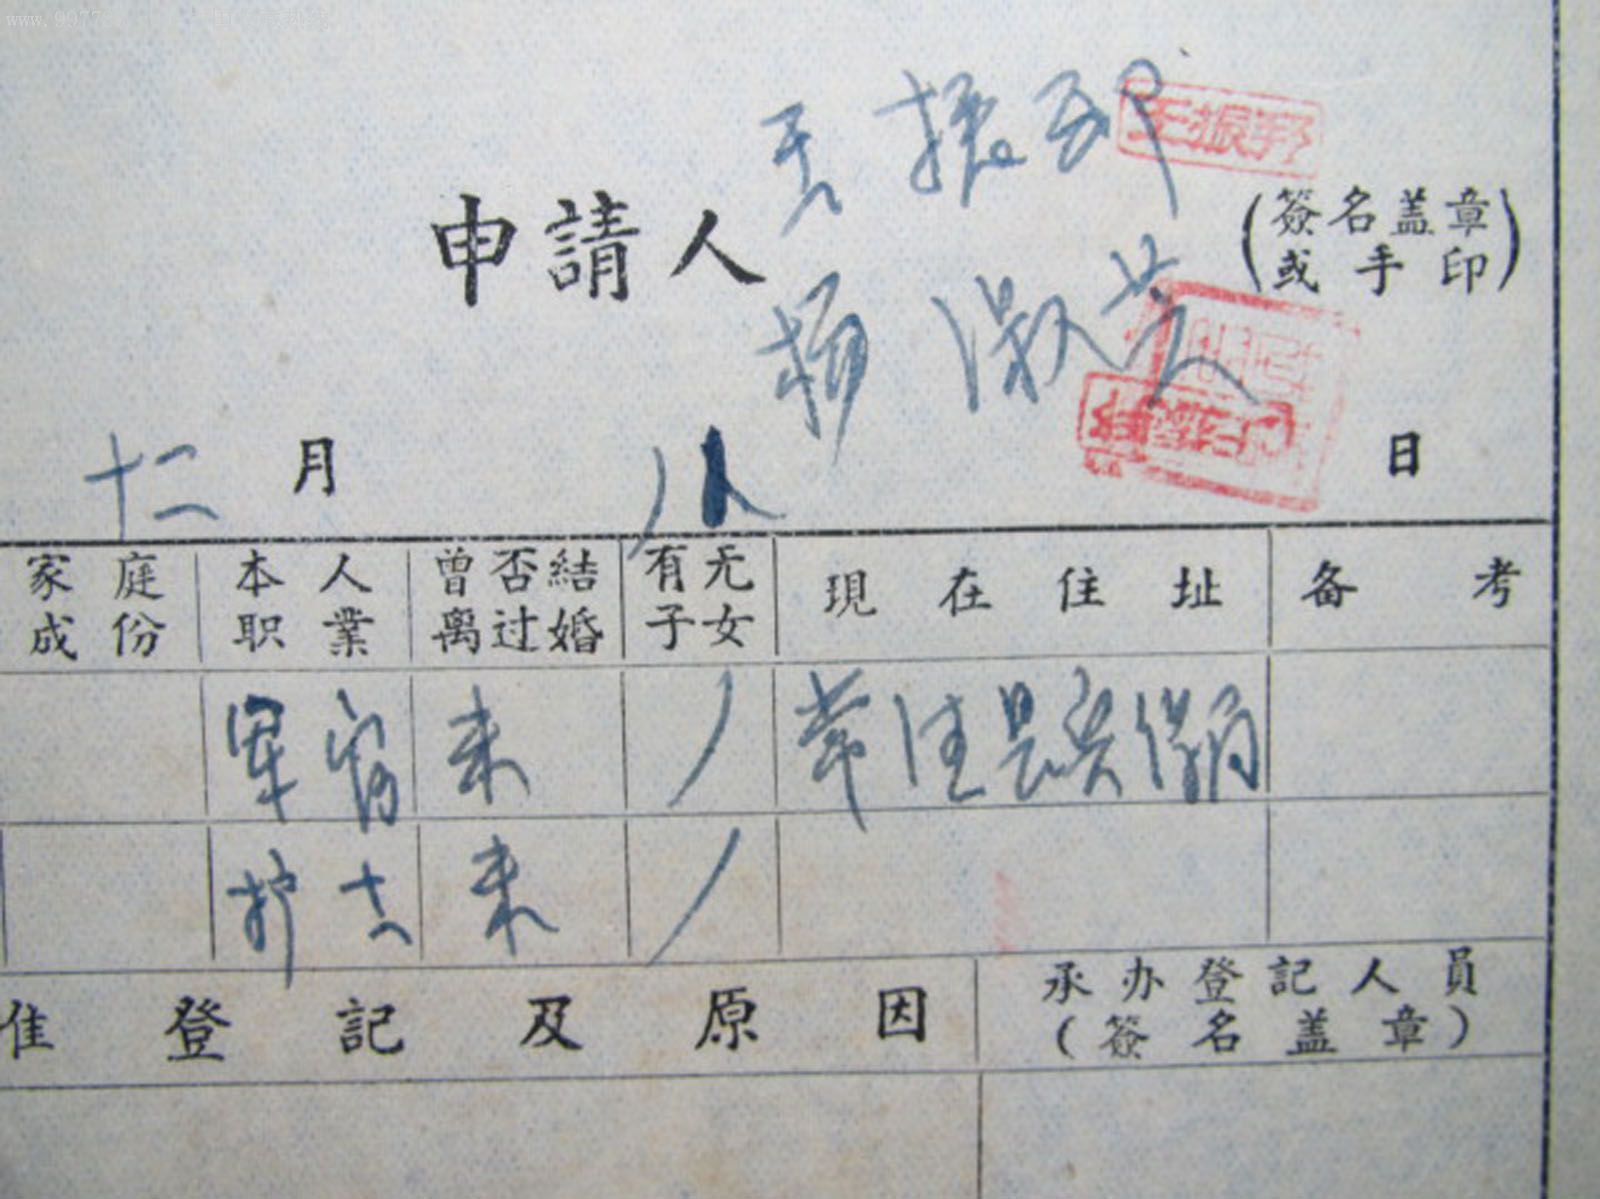 王振邦 王振邦
申請人 (簽名盖章
或手印)
杨淑兰
十二月 八 日
家庭成份 本人职業 曾否結过离婚 有无子女 現在住址 备考
军官 未 /
护士 未 /
准登記及原因 承办登記人員
(簽名盖章)